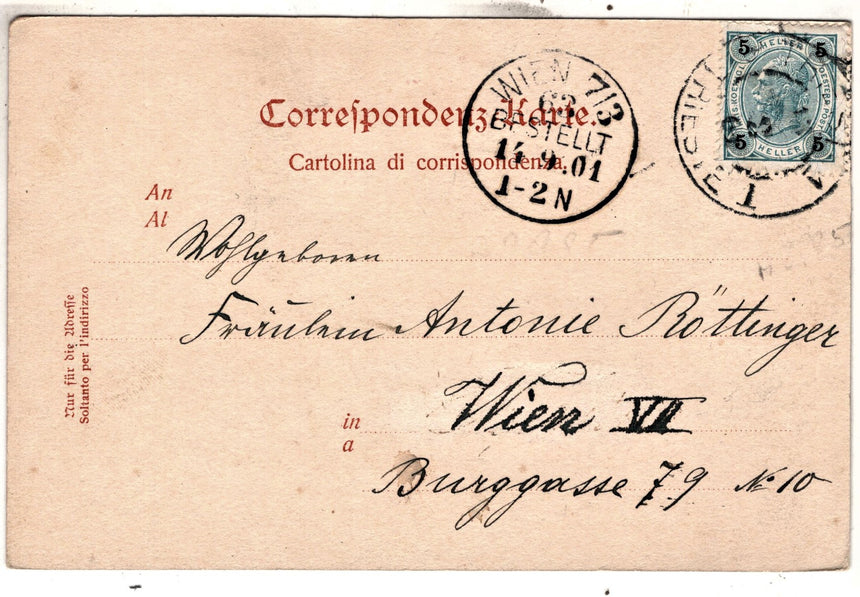 Correspondenz-Karte.
Cartolina di corrispondenza.
WIEN 7/3
63
BESTELLT
14.9.01
1-2N
5 HELLER 5
5 HELLER 5
TRIESTE
1
An
Al
Wohlgeboren
Fräulein Antonie Röttinger
in
a
Wien VII
Burggasse 79 No 10
Nur für die Adresse
Soltanto per l'indirizzo